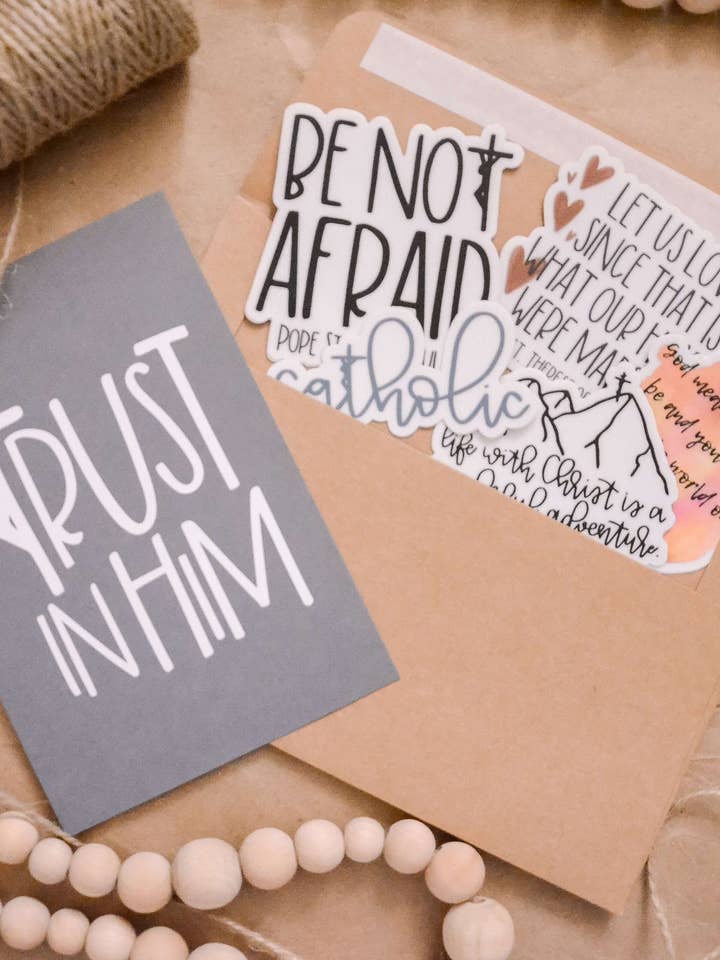 TRUST
IN HIM
BE NOT
AFRAID
POPE ST.
catholic
LET US LO
SINCE THAT IS
WHAT OUR
WERE MA
ST. THERESE OF
life with Christ is a
adventure.
God mea
be and you
world o